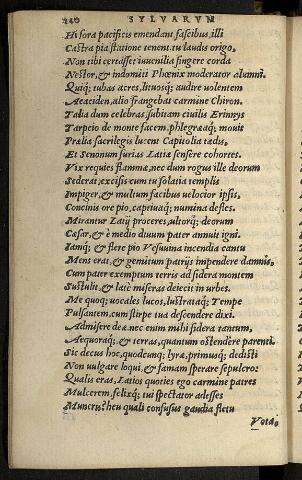 220 SYLVARVM
Hi fora pacificis emendant fascibus, illi
Castra pia statione tenent. tu laudis origo,
Non tibi certasset iuuenilia fingere corda
Nestor, & indomiti Phœnix moderator alumni.
Quiq; tubas acres, lituosq; audire uolentem
Aeaciden, alio frangebat carmine Chiron.
Talia dum celebras, subitam ciuilis Erinnys
Tarpeio de monte facem, phlegræaq; mouit
Prælia sacrilegis lucent Capitolia tædis,
Et Senonum furias Latiæ sensere cohortes.
Vix requies flammæ, nec dum rogus ille deorum
Sederat, excisis cum tu solatia templis
Impiger, & multum facibus uelocior ipsis,
Concinis ore pio, captiuaq; numina defles.
Mirantur Latij proceres, ultorq; deorum
Cæsar, & è medio diuum pater annuit igni.
Iamq; & flere pio Vesuuina incendia cantu
Mens erat, & gemitum patrijs impendere damnis,
Cum pater exemptum terris ad sidera montem
Sustulit, & latè miseras deiecit in urbes.
Me quoq; uocales lucos, lustrataq; Tempe
Pulsantem, cum stirpe tua descendere dixi.
Admisere deæ. nec enim mihi sidera tantum,
Aequoraq; & terras, quantum ostendere parenti.
Sic decus hoc, quodcunq; lyræ, primusq; dedisti
Non uulgare loqui, & famam sperare sepulcro.
Qualis eras, Latios quoties ego carmine patres
Mulcerem, felixq; tui spectator adesses
Muneris? heu quali confusus gaudia fletu
Vota,